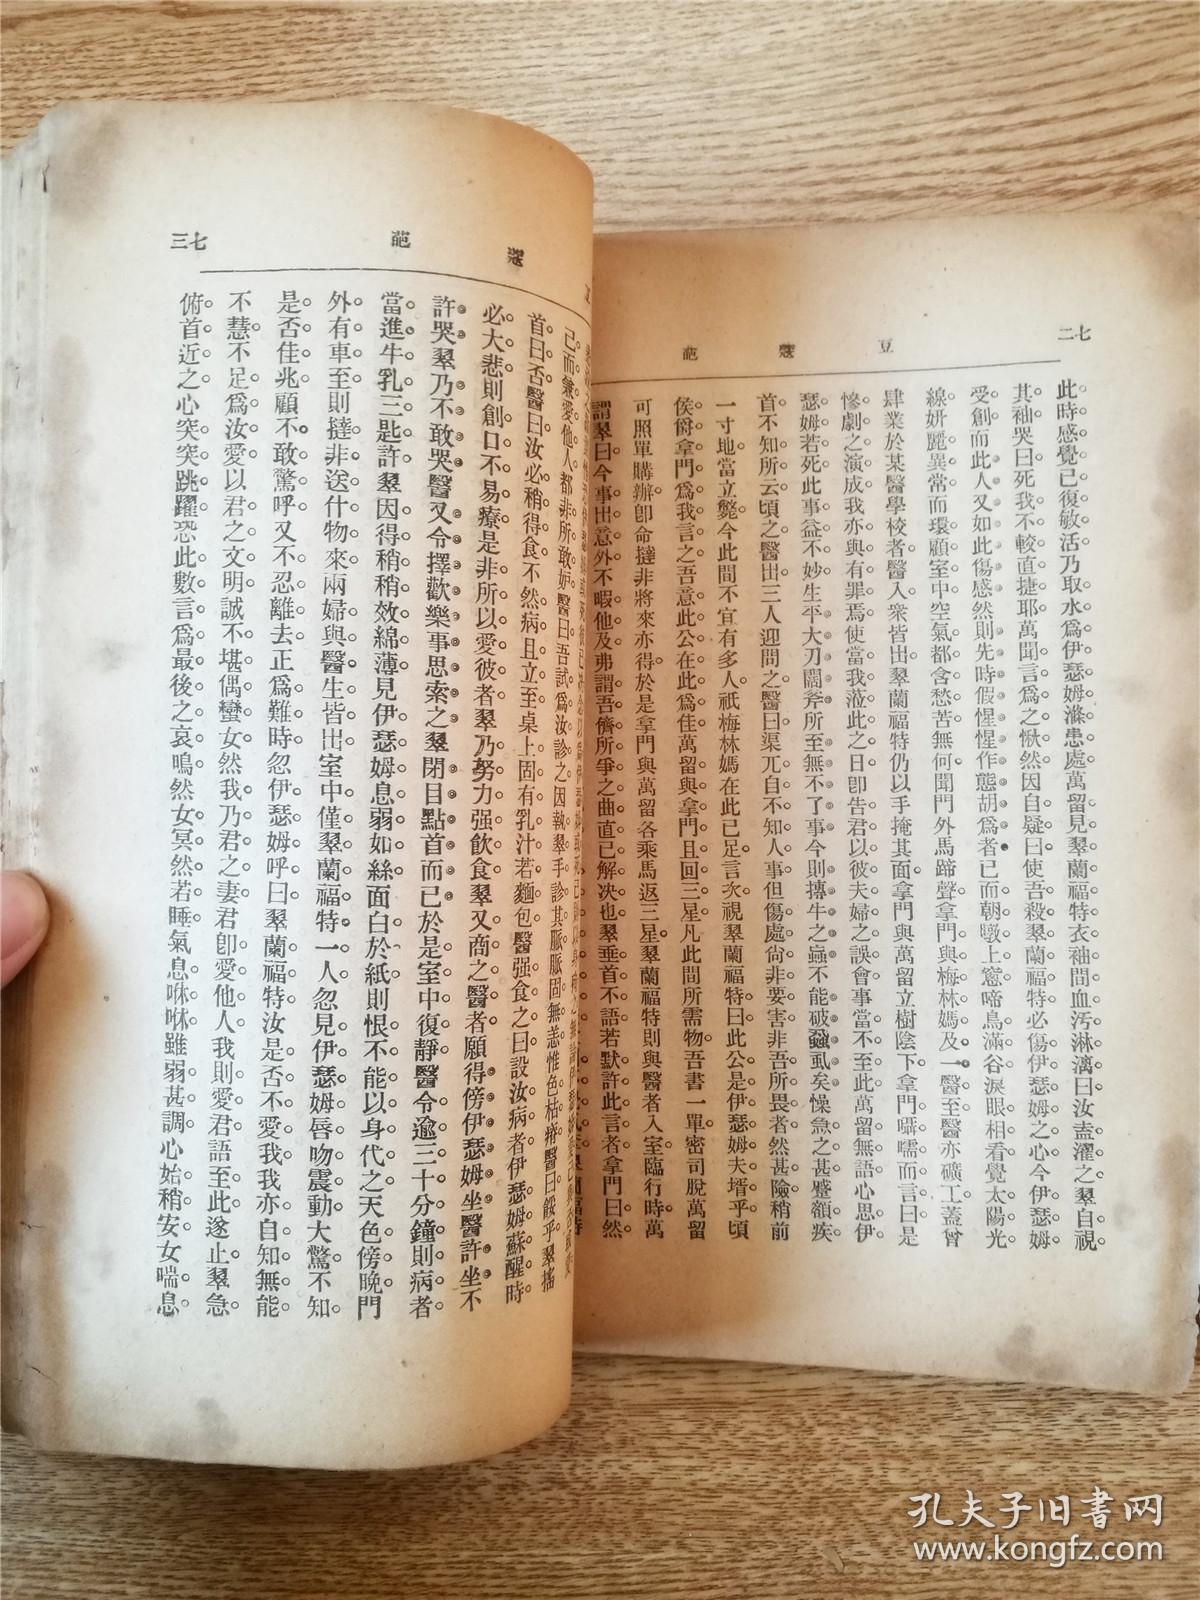 七二
豆蔻葩
此時感覺已復敏活乃取水爲伊瑟姆滌患處萬留見翠蘭福特衣袖間血汚淋漓曰汝盍濯之翠自視
其袖哭曰死我不較直捷耶萬聞言爲之愀然因自疑曰使吾殺翠蘭福特必傷伊瑟姆之心今伊瑟姆
受創而此人又如此傷感然則先時假惺惺作態胡爲者已而朝暾上窻啼鳥滿谷淚眼相看覺太陽光
線妍麗異常而環顧室中空氣都含愁苦無何聞門外馬蹄聲拿門與梅林媽及一醫至醫亦礦工蓋曾
肆業於某醫學校者醫入衆皆出翠蘭福特仍以手掩其面拿門與萬留立樹陰下拿門囁嚅而言曰是
慘劇之演成我亦與有罪焉使當我蒞此之日卽告君以彼夫婦之誤會事當不至此萬留無語心思伊
瑟姆若死此事益不妙生平大刀闊斧所至無不了事今則摶牛之蝱不能破蟣虱矣懆急之甚蹙額疾
首不知所云頃之醫出三人迎問之醫曰渠兀自不知人事但傷處尙非要害非吾所畏者然甚險稍前
一寸地當立斃今此間不宜有多人祇梅林媽在此已足言次視翠蘭福特曰此公是伊瑟姆夫壻乎頃
侯爵拿門爲我言之吾意此公在此爲佳萬留與拿門且回三星凡此間所需物吾書一單密司脫萬留
可照單購辦卽命撻非將來亦得於是拿門與萬留各乘馬返三星翠蘭福特則與醫者入室臨行時萬
謂翠曰今事出意外不暇他及弗謂吾儕所爭之曲直已解决也翠垂首不語若默許此言者拿門曰然
七三
蔻葩
己而兼愛他人都非所敢妒醫曰吾試爲汝診之因執翠手診其脈脈固無恙惟色枯瘠醫曰餒乎翠搖
首曰否醫曰汝必稍得食不然病且立至桌上固有乳汁若麵包醫强食之曰設汝病者伊瑟姆蘇醒時
必大悲則創口不易療是非所以愛彼者翠乃努力强飲食翠又商之醫者願得傍伊瑟姆坐醫許坐不
許哭翠乃不敢哭醫又令擇歡樂事思索之翠閉目點首而已於是室中復靜醫令逾三十分鐘則病者
當進牛乳三匙許翠因得稍稍效綿薄見伊瑟姆息弱如絲面白於紙則恨不能以身代之天色傍晚門
外有車至則撻非送什物來兩婦與醫生皆出室中僅翠蘭福特一人忽見伊瑟姆唇吻震動大驚不知
是否佳兆顧不敢驚呼又不忍離去正爲難時忽伊瑟姆呼曰翠蘭福特汝是否不愛我我亦自知無能
不慧不足爲汝愛以君之文明誠不堪偶蠻女然我乃君之妻君卽愛他人我則愛君語至此遂止翠急
俯首近之心突突跳躍恐此數言爲最後之哀鳴然女冥然若睡氣息咻咻雖弱甚調心始稍安女喘息
孔夫子旧書网
www.kongfz.com